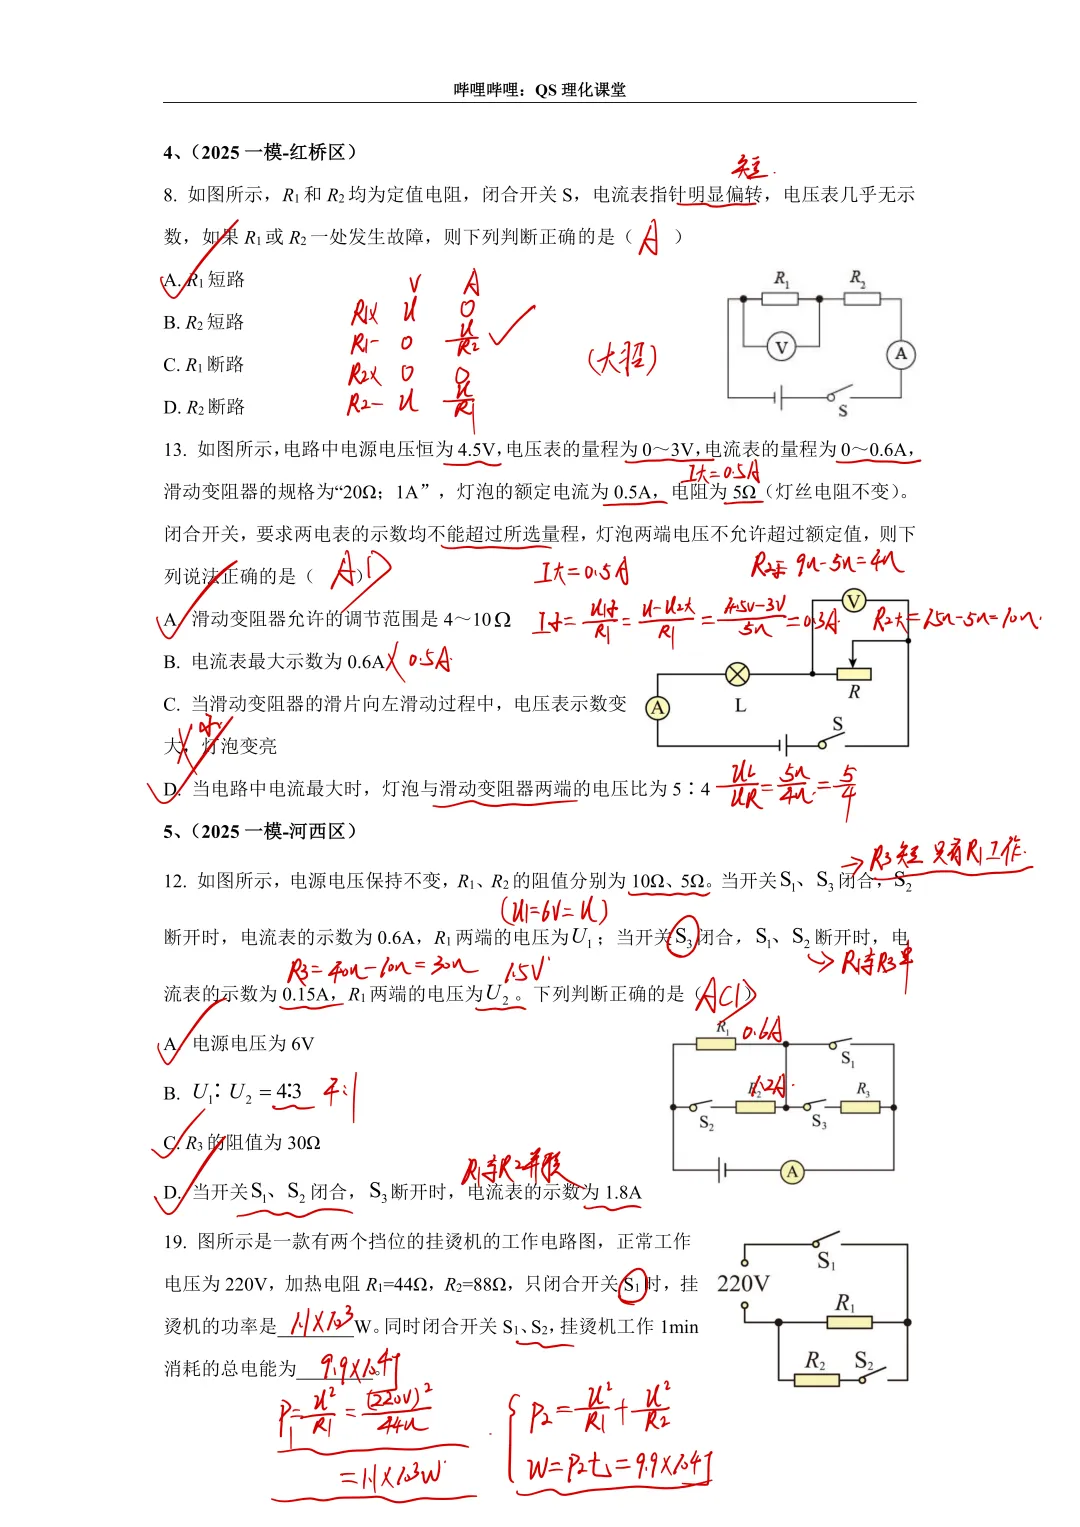 哔哩哔哩：QS 理化课堂
4、（2025 一模-红桥区）
短
8. 如图所示，R1 和 R2 均为定值电阻，闭合开关 S，电流表指针明显偏转，电压表几乎无示
数，如果 R1 或 R2 一处发生故障，则下列判断正确的是（ A ）
A. R1 短路
B. R2 短路
C. R1 断路
D. R2 断路
V A
R1× U 0
R1− 0 U/R2 ✓
R2× 0 0
R2− U U/R1
(大招)
R1 R2
V A
S
13. 如图所示，电路中电源电压恒为 4.5V，电压表的量程为 0～3V，电流表的量程为 0～0.6A，
I大=0.5A
滑动变阻器的规格为“20Ω；1A”，灯泡的额定电流为 0.5A，电阻为 5Ω（灯丝电阻不变）。
闭合开关，要求两电表的示数均不能超过所选量程，灯泡两端电压不允许超过额定值，则下
列说法正确的是（ AD ）
I大=0.5A
R2小=9Ω-5Ω=4Ω
A. 滑动变阻器允许的调节范围是 4～10 Ω
I小=U1小/R1=U-U2大/R1=4.5V-3V/5Ω=0.3A
R2大=15Ω-5Ω=10Ω
B. 电流表最大示数为 0.6A × 0.5A
C. 当滑动变阻器的滑片向左滑动过程中，电压表示数变
小
大，灯泡变亮
V
A L R
S
D. 当电路中电流最大时，灯泡与滑动变阻器两端的电压比为 5∶4
UL/UR=5Ω/4Ω=5/4
5、（2025 一模-河西区）
→R3短 只有R1工作
12. 如图所示，电源电压保持不变，R1、R2 的阻值分别为 10Ω、5Ω。当开关S1、S3闭合，S2
(U1=6V=U)
断开时，电流表的示数为 0.6A，R1 两端的电压为U1；当开关S3闭合，S1、S2断开时，电
R3=40Ω-10Ω=30Ω 1.5V →R1与R3串
流表的示数为 0.15A，R1 两端的电压为U2。下列判断正确的是（ACD）
A. 电源电压为 6V
B. U1∶U2=4∶3 4:1
C. R3 的阻值为 30Ω
R1与R2并联
D. 当开关S1、S2 闭合，S3断开时，电流表的示数为 1.8A
R1 0.6A
S1
1.2A
R2 R3
S2 S3
A
19. 图所示是一款有两个挡位的挂烫机的工作电路图，正常工作
电压为 220V，加热电阻 R1=44Ω，R2=88Ω，只闭合开关 S1 时，挂
烫机的功率是 1.1×10³ W。同时闭合开关 S1、S2，挂烫机工作 1min
消耗的总电能为 9.9×10⁴J 。
S1
220V
R1
R2 S2
P1=U²/R1=(220V)²/44Ω
=1.1×10³W
P2=U²/R1+U²/R2
W=P2t=9.9×10⁴J